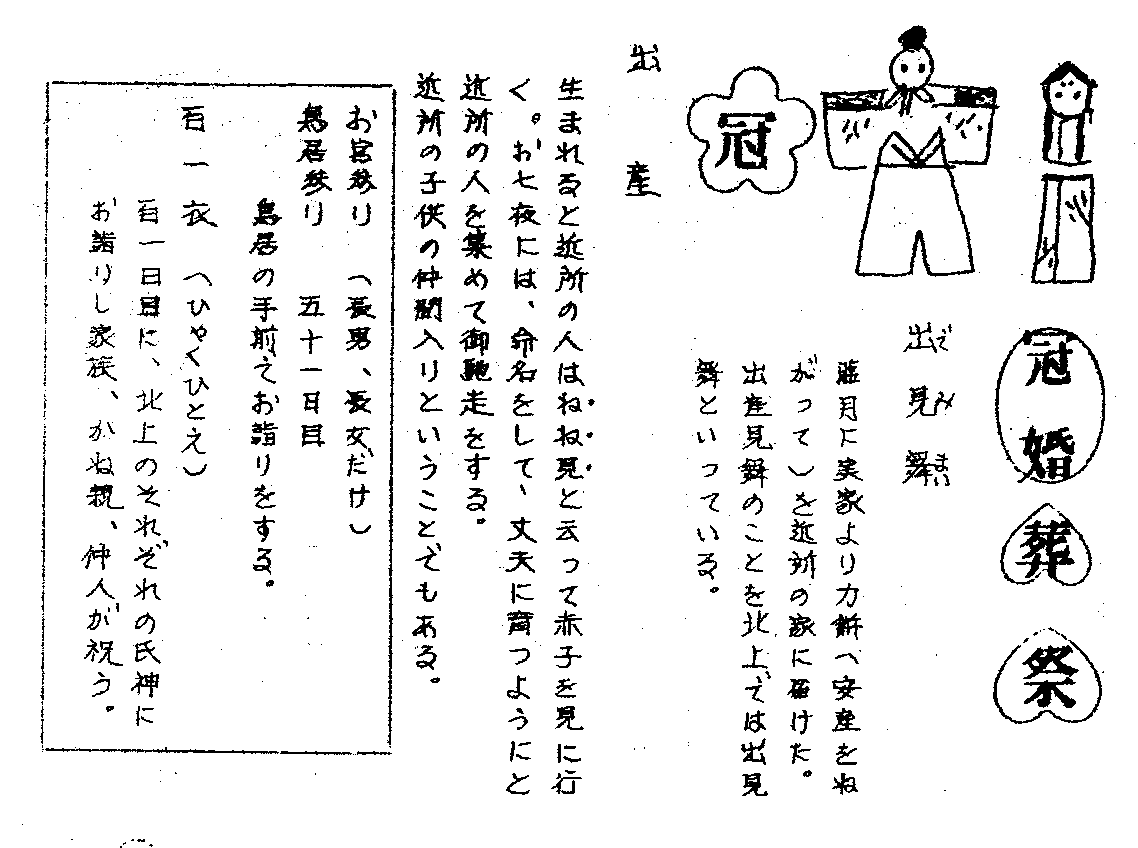 冠婚葬祭
冠
出見舞
でみまい
臨月に実家より力餅（安産をね
がって）を近所の家に届けた。
出産見舞のことを北上では出見
舞といっている。
出産
生まれると近所の人はねね見と云って赤子を見に行
く。お七夜には、命名をして、丈夫に育つようにと
近所の人を集めて御馳走をする。
近所の子供の仲間入りということでもある。
お宮参り（長男、長女だけ）
鳥居参り 五十一日目
鳥居の手前でお詣りをする。
百一衣（ひゃくひとえ）
百一日目に、北上のそれぞれの氏神に
お詣りし家族、かね親、仲人が祝う。